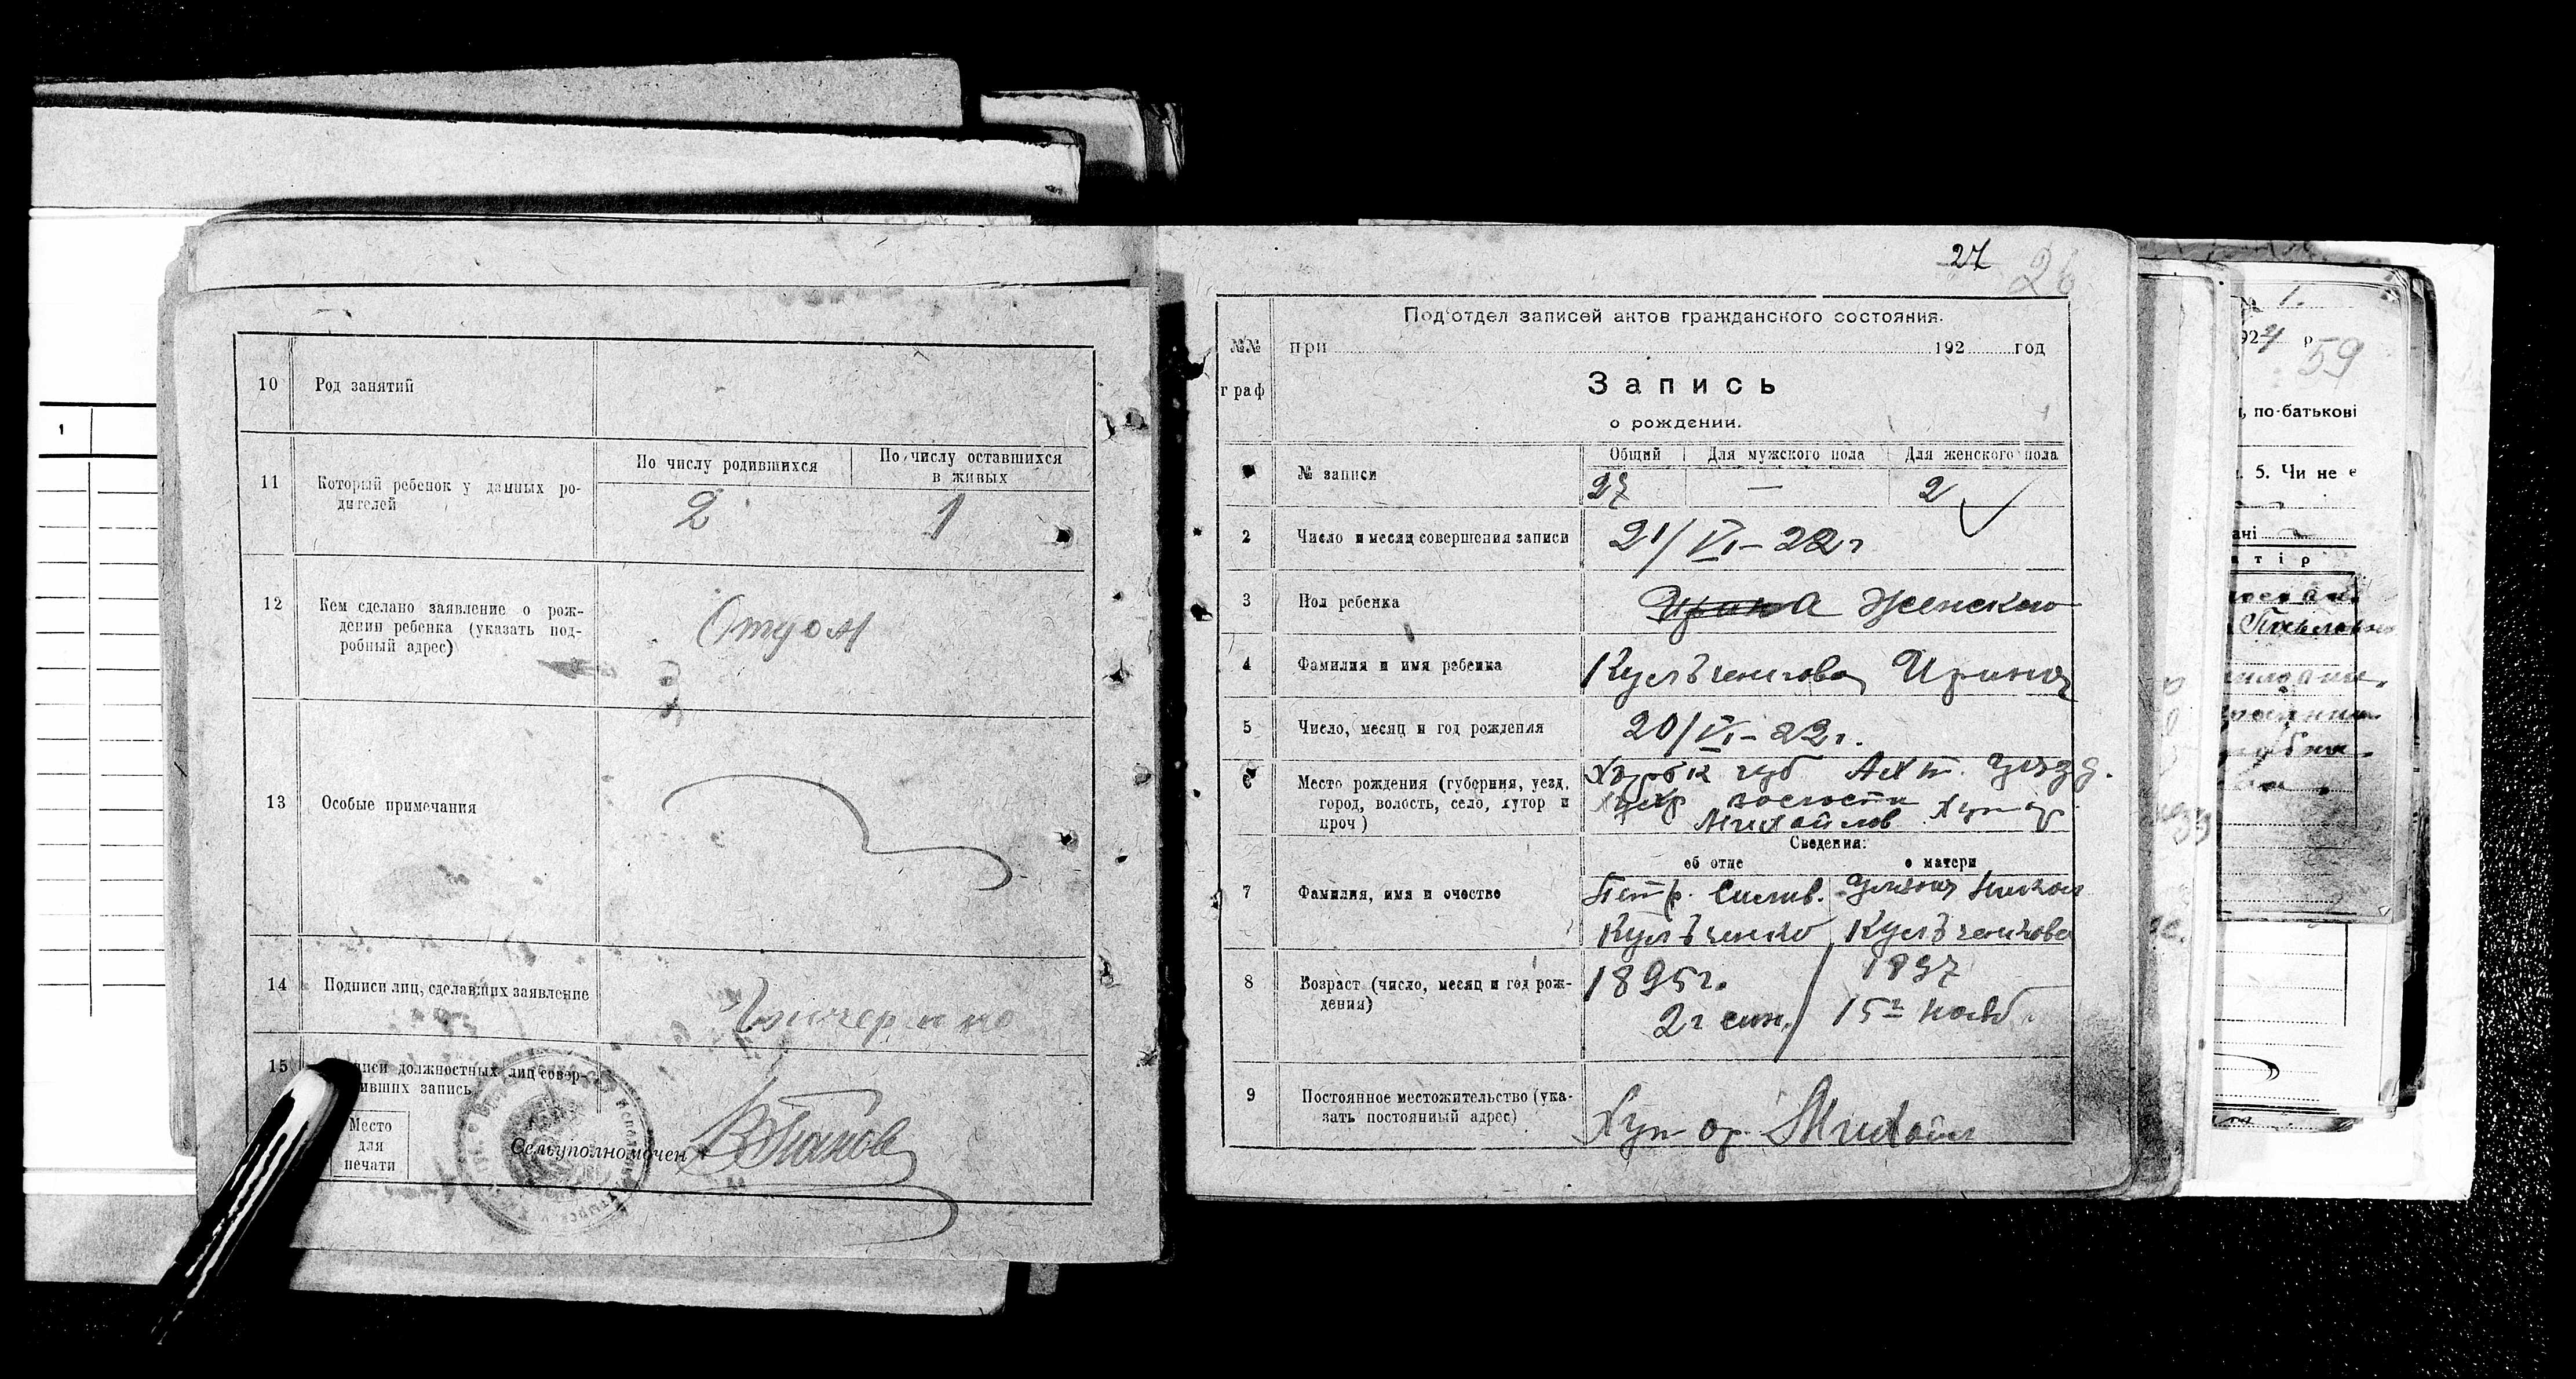 10 Род занятий
11 Который ребенок у данных ро-
дителей
По числу родившихся
По числу оставшихся
в живых
2
1
12 Кем сделано заявление о рож-
дении ребенка (указать под-
робный адрес)
Отцом
13 Особые примечания
14 Подписи лиц, сделавших заявление
15
должностных лиц совер-
ивших запись
Место
для
печати
Сельуполномочен
27
26
Под'отдел записей актов гражданского состояния.
№№
граф
при 192 год
Запись
о рождении.
№ записи
Общий
Для мужского пола
Для женского пола
27
—
2
2 Число и месяц совершения записи
21/VI–22 г
3 Пол ребенка
Женского
4 Фамилия и имя ребенка
Ирина
5 Число, месяц и год рождения
20/VI–22 г.
6 Место рождения (губерния, уезд,
город, волость, село, хутор и
проч)
губ Ахт. уезд.
волости
Михайлов хутор
Сведения:
об отце
о матери
7 Фамилия, имя и очество
Петр
8 Возраст (число, месяц и год рож-
дения)
1895 г.
1897
15 г нояб
9 Постоянное местожительство (ука-
зать постоянный адрес)
Хутор Михайл
1
1.
924 р
59
, по-батькові
5. Чи не є